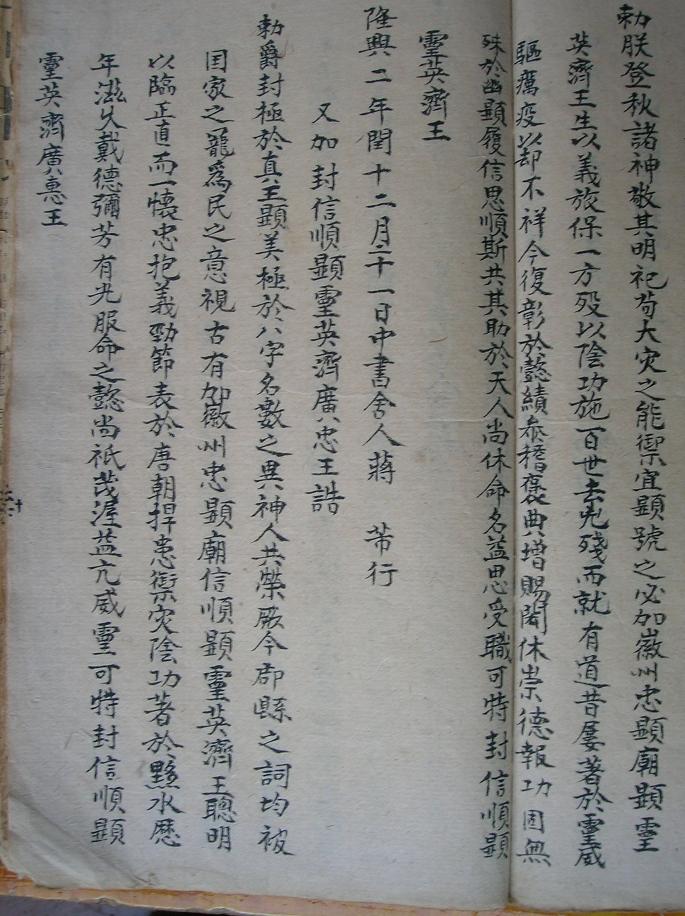 勅朕登秩諸神敬其明祀苟大灾之能禦宜顯號之必加徽州忠顯廟顯靈
英濟王生以義旅保一方殁以陰功施百世去兇殘而就有道昔屢著於靈威
驅癘疫以却不祥今復彰於懿績叅稽褒典增賜閎休崇德報功固無
殊於幽顯履信思順斯共其助於天人尚休命名益思受職可特封信順顯
靈英濟王
隆興二年閏十二月二十一日中書舍人蔣 芾行
又加封信順顯靈英濟廣忠王誥
勅爵封極於真王顯美極於八字名數之異神人共榮厥今郡縣之詞均被
国家之寵為民之意視古有加徽州忠顯廟信順顯靈英濟王聰明
以臨正直而一懐忠抱義勁節表於唐朝捍患禦灾陰功著於黟水歷
年滋乆戴德彌芳有光服命之懿尚祇茂渥益亢威靈可特封信順顯
靈英濟廣惠王